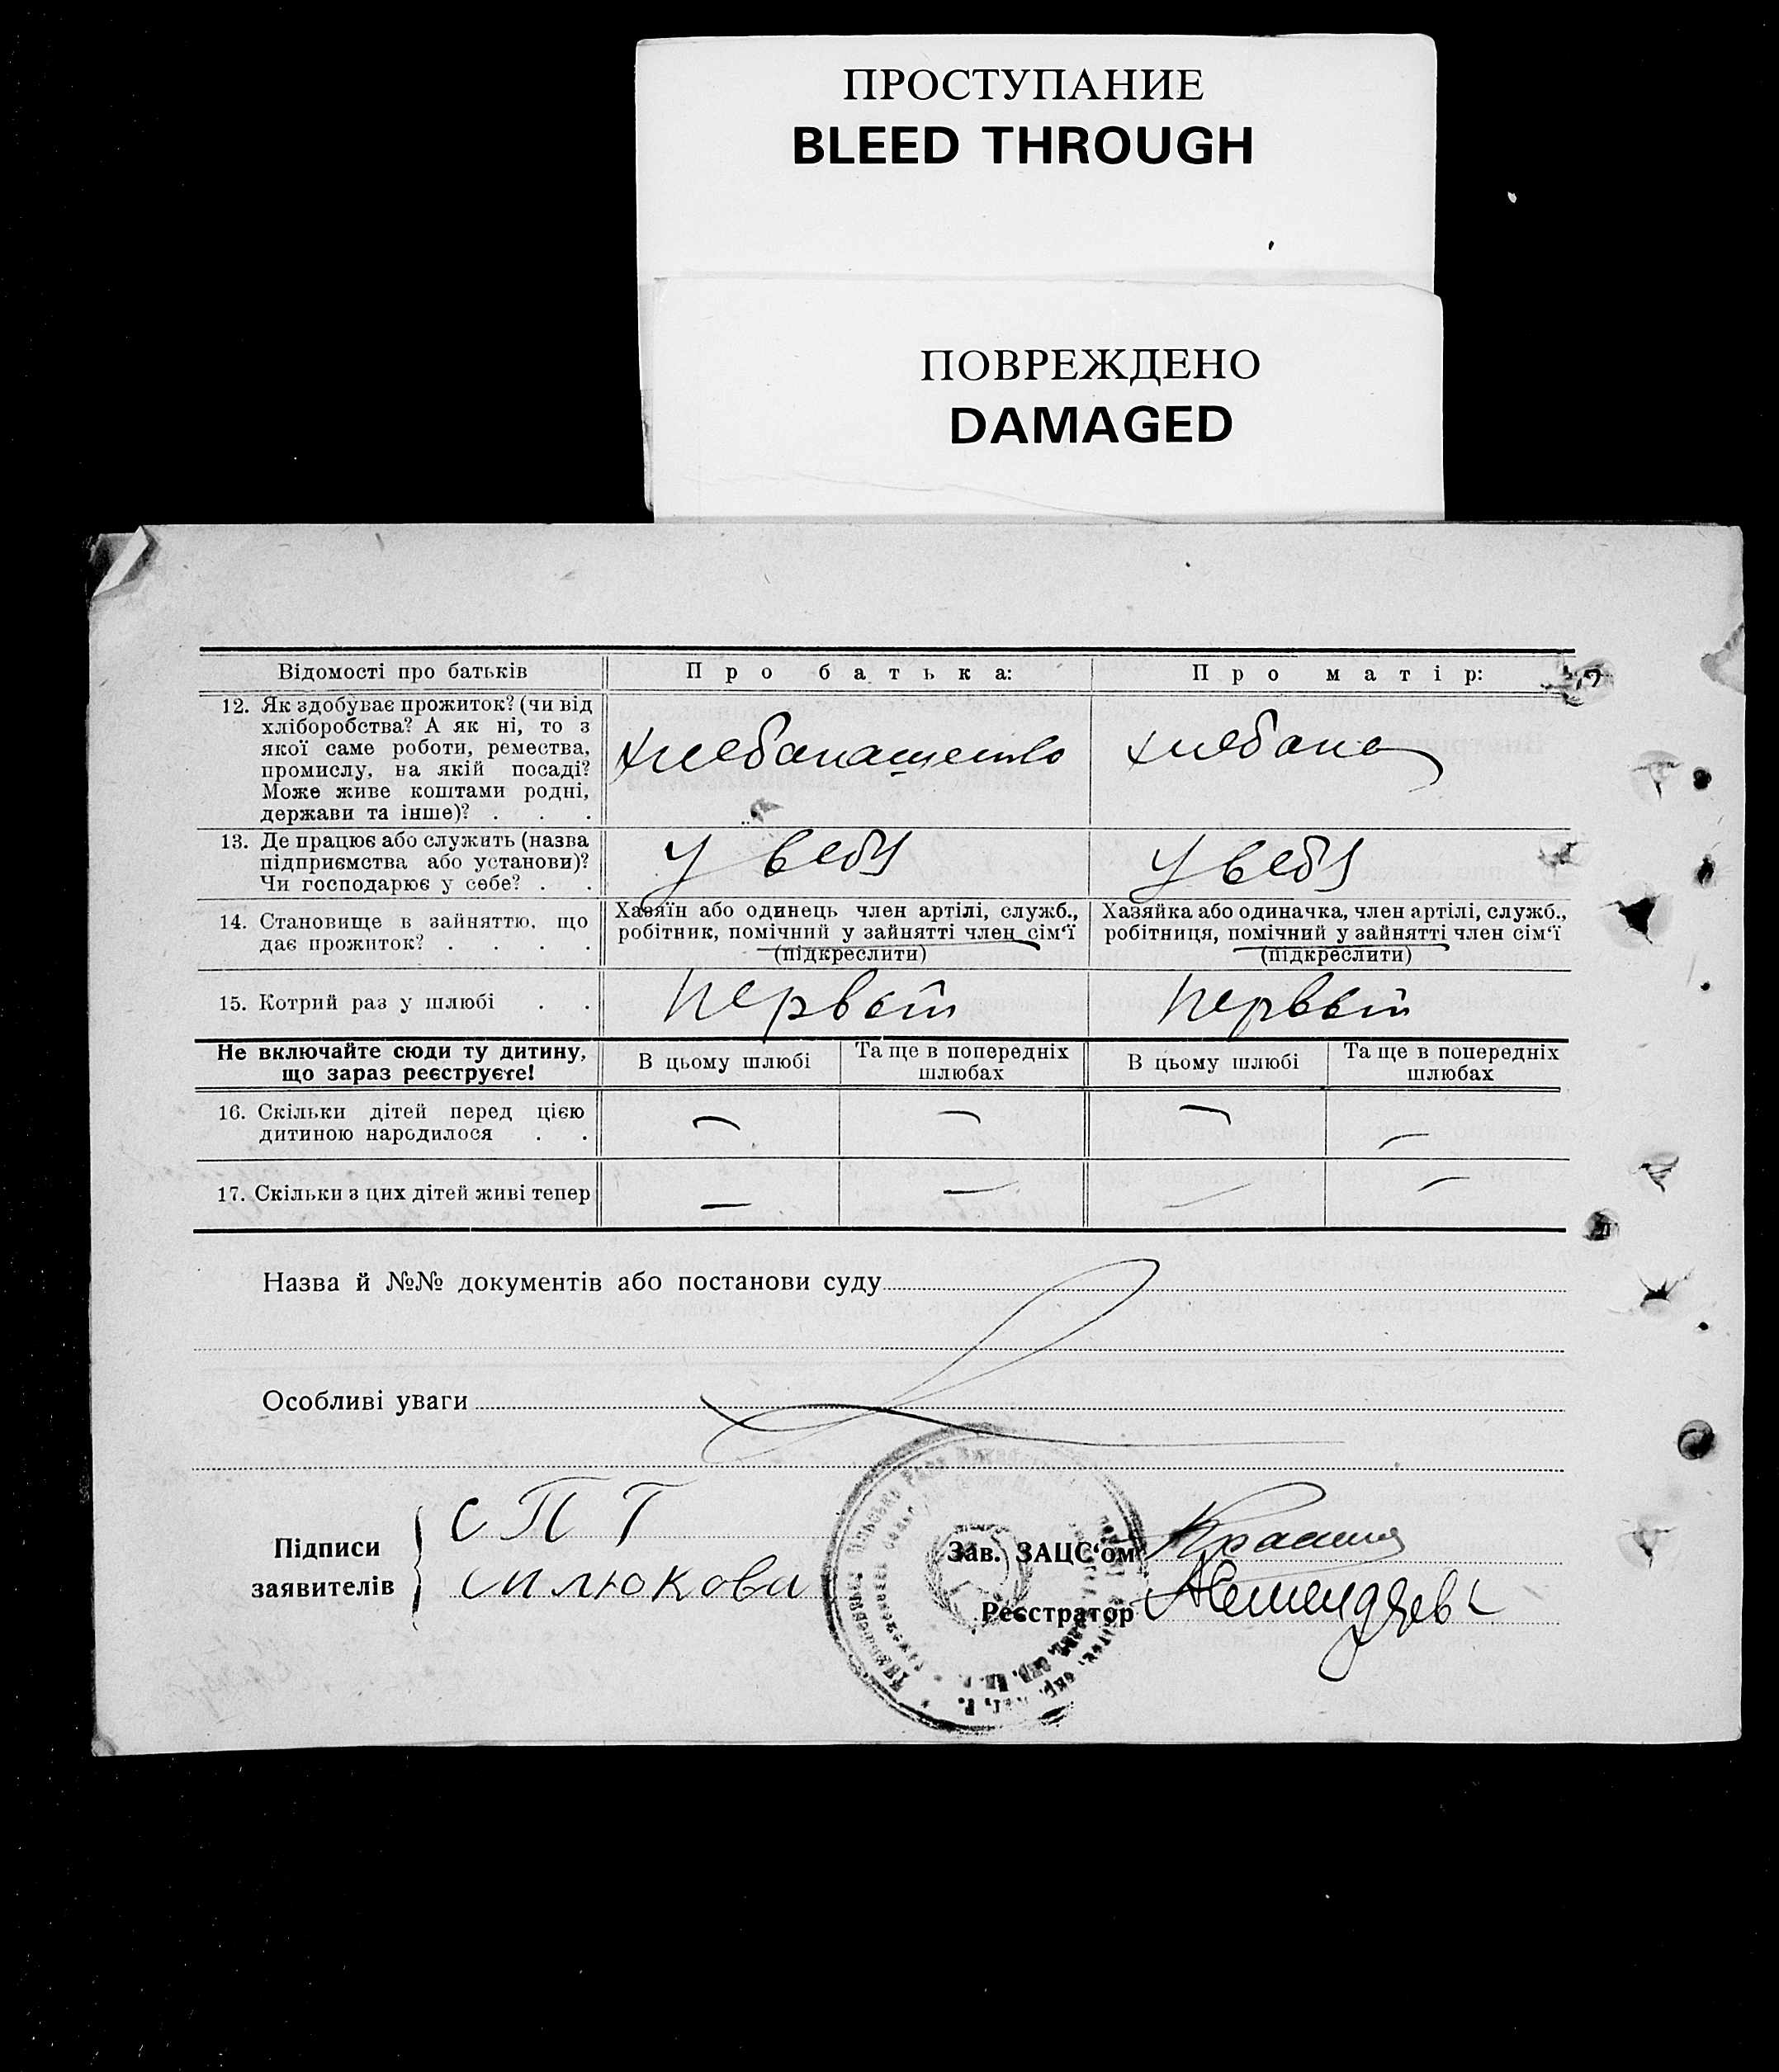 ПРОСТУПАНИЕ
BLEED THROUGH
ПОВРЕЖДЕНО
DAMAGED
Відомості про батьків
Про батька:
Про матір:
12. Як здобуває прожиток? (чи від
хліборобства? А як ні, то з
якої саме роботи, ремества,
промислу, на якій посаді?
Може живе коштами родні,
держави та інше)? . . .
хлебопашество
хлебопа
13. Де працює або служить (назва
підприємства або установи)?
Чи господарює у себе? . .
У себя
У себя
14. Становище в зайняттю, що
дає прожиток? . . . .
Хазяїн або одинець член артілі, служб.,
робітник, помічний у зайнятті член сім'ї
(підкреслити)
Хазяйка або одиначка, член артілі, служб.,
робітниця, помічний у зайнятті член сім'ї
(підкреслити)
15. Котрий раз у шлюбі . .
первый
первый
Не включайте сюди ту дитину,
що зараз реєструєте!
В цьому шлюбі
Та ще в попередніх
шлюбах
В цьому шлюбі
Та ще в попередніх
шлюбах
16. Скільки дітей перед цією
дитиною народилося . .
— — — —
17. Скільки з цих дітей живі тепер
— — — —
Назва й №№ документів або постанови суду
Особливі уваги
Підписи
заявителів
С П Г
Милюкова
Зав. ЗАЦС'ом
Реєстратор